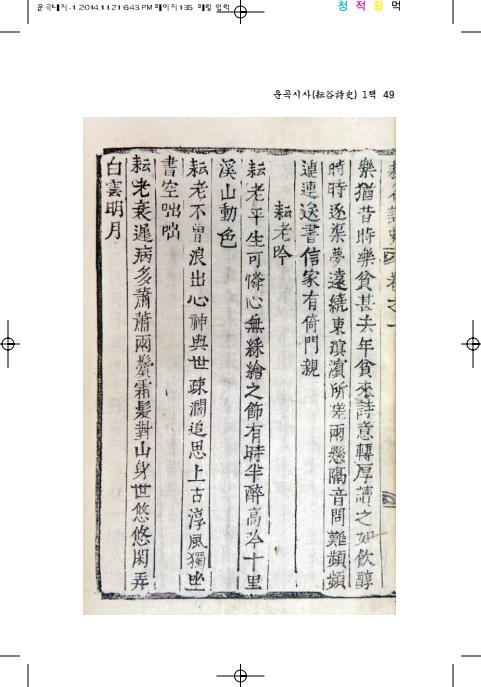 운곡내지-1 2014.11.21 6:43 PM 페이지135 매킨
청 적 황 먹
운곡시사(耘谷詩史) 1책 49
樂猶昔時樂貧甚去年貧來詩意轉厚讀之如飮醇
時時逐渠夢遠繞東溟濱所嗟兩懸隔音問難頻頻
連連送書信家有倚門親
耘老吟
耘老平生可憐心無綵繪之餙有時半醉高吟十里
溪山動色
耘老不曾浪出心神與世疎濶追思上古淳風獨坐
書空咄咄
耘老衰遲病多蕭蕭兩鬢霜髮對山身世悠悠閑弄
白雲明月